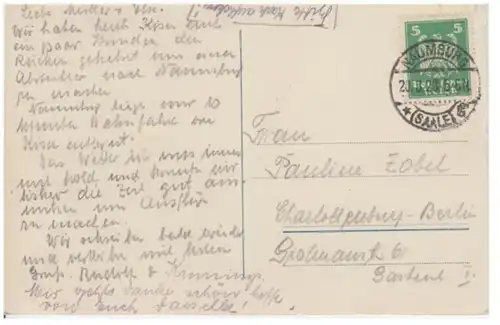 (Bitte
Liebe Mutter u.
Wir haben heute Kösen auf
ein paar Stunden den
Rücken gekehrt um einen
Abstecher nach Naumburg
zu machen
Naumburg liegt nur 10
Minuten Bahnfahrt von
Kösen entfernt.
Das Wetter ist uns immer
noch hold und konnten wir
bisher die Zeit gut aus-
nutzen um Ausflüge
zu machen.
Wir schreiben bald wieder
und verbleiben mit besten
Grüß. Rudolf &
Mir gehts danke schön, hoffe
von Euch dasselbe!
5 5
NAUMBURG
(SAALE)
Frau
Pauline Zobel
Charlottenburg-Berlin
Grolmanstr. 6
Gartenh. I.